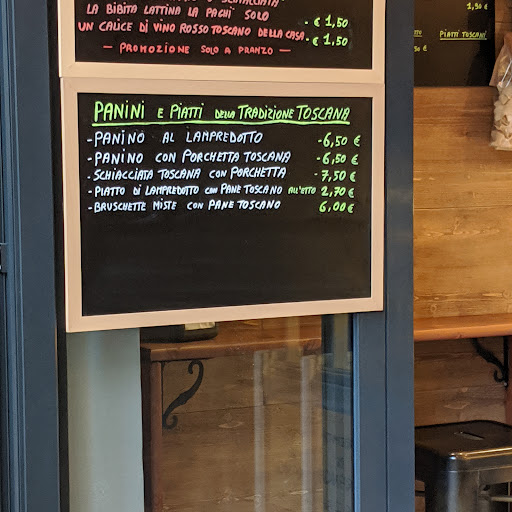 LA BIBITA LATTINA LA PAGHI SOLO - € 1,50
UN CALICE DI VINO ROSSO TOSCANO DELLA CASA - € 1,50
— PROMOZIONE SOLO A PRANZO —
PANINI E PIATTI DELLA TRADIZIONE TOSCANA
- PANINO AL LAMPREDOTTO - 6,50 €
- PANINO CON PORCHETTA TOSCANA - 6,50 €
- SCHIACCIATA TOSCANA CON PORCHETTA - 7,50 €
- PIATTO DI LAMPREDOTTO CON PANE TOSCANO ALL'ETTO 2,70 €
- BRUSCHETTE MISTE CON PANE TOSCANO 6,00 €
1,50 €
PIATTI TOSCANI